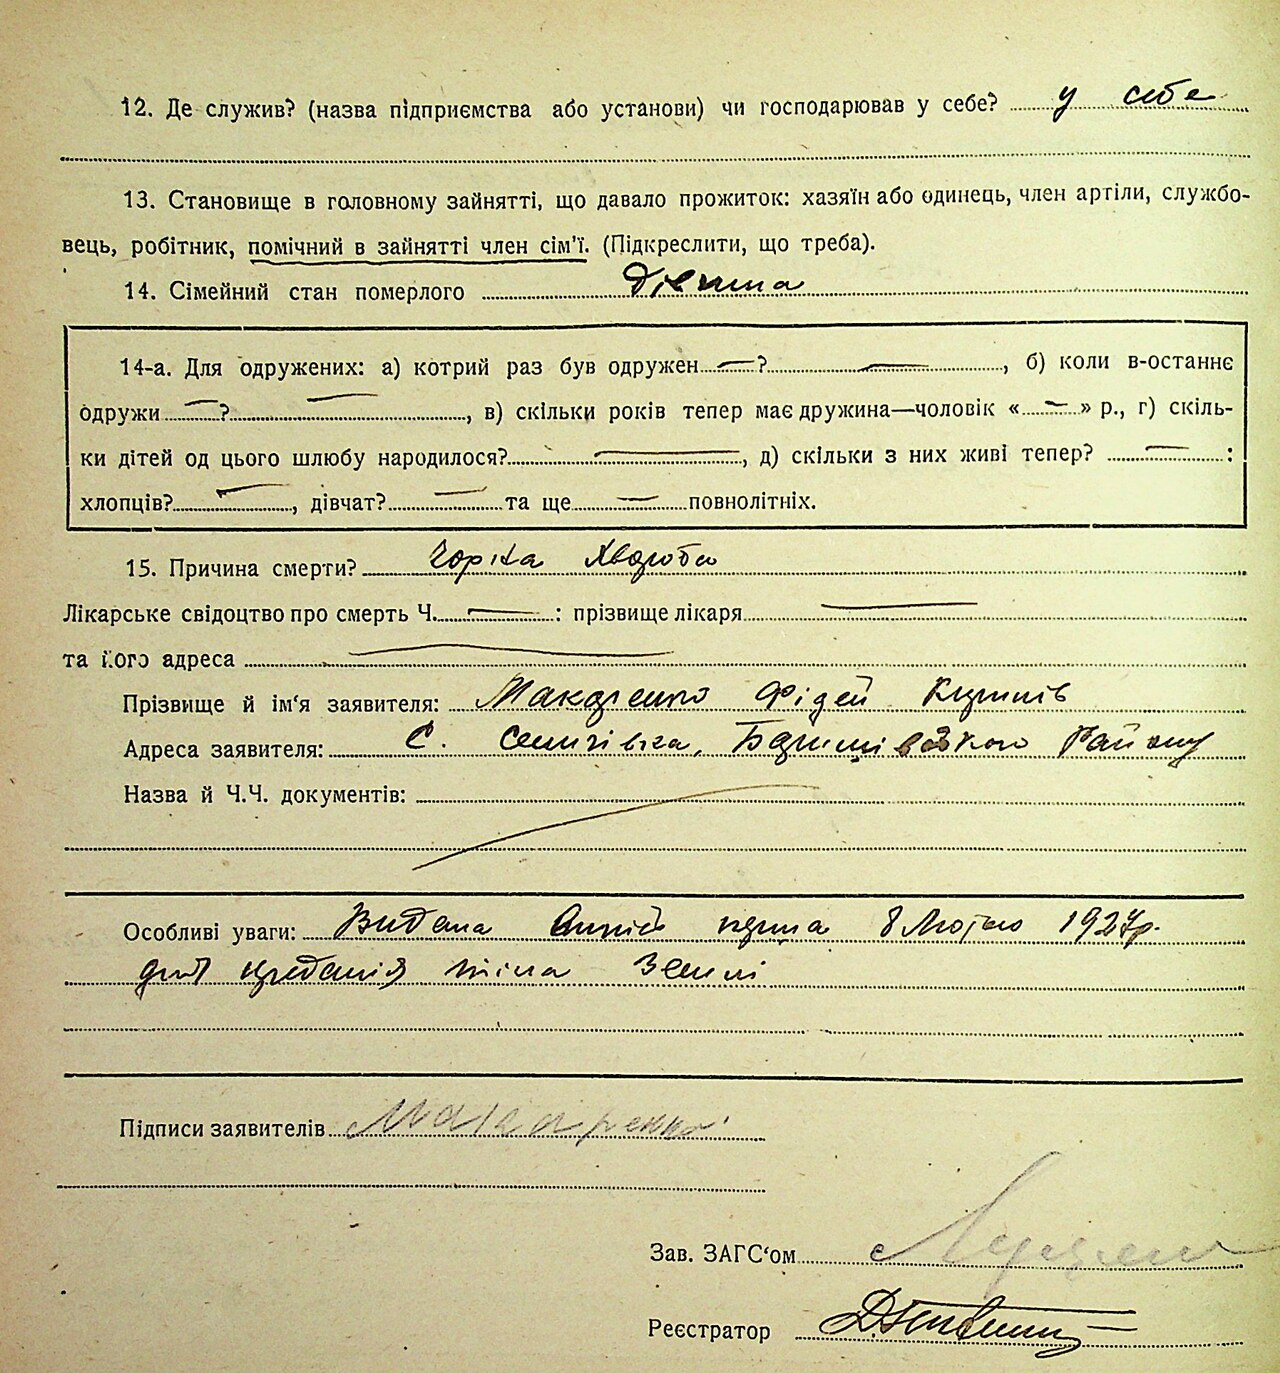 12. Де служив? (назва підприємства або установи) чи господарював у себе? у себе
13. Становище в головному зайнятті, що давало прожиток: хазяїн або одинець, член артіли, службо-
вець, робітник, помічний в зайнятті член сім'ї. (Підкреслити, що треба).
14. Сімейний стан померлого Дівчина
14-а. Для одружених: а) котрий раз був одружен — ? —, б) коли в-останнє
одружи — ? —, в) скільки років тепер має дружина—чоловік « — » р., г) скіль-
ки дітей од цього шлюбу народилося? —, д) скільки з них живі тепер? — :
хлопців? —, дівчат? — та ще — повнолітніх.
15. Причина смерти? Хвороба
Лікарське свідоцтво про смерть Ч. — : прізвище лікаря —
та його адреса —
Прізвище й ім'я заявителя: Макаренко Фідей
Адреса заявителя: С. Семнівка, району
Назва й Ч.Ч. документів:
Особливі уваги: Видана 8 Лютого 1927р.
для тіла Землі
Підписи заявителів Макаренко
Зав. ЗАГС'ом
Реєстратор